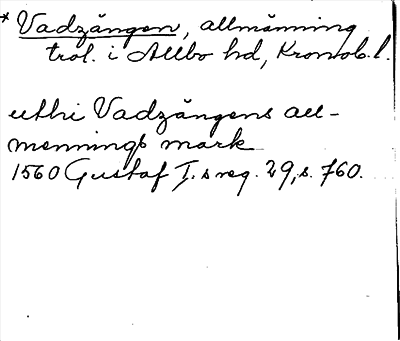 * Vadzängen, allmänning
trol. i Allbo hd, Kronob. l.
uthi Vadzängens all-
mennings mark
1560 Gustaf I.s reg. 29, s. 760.